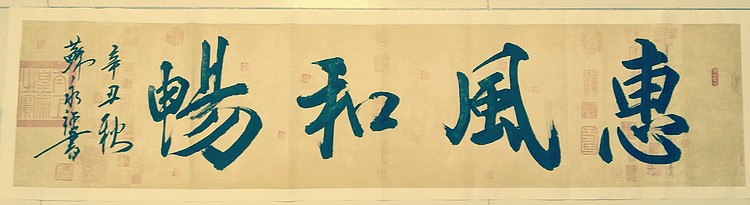 惠風和暢
辛丑秋
蘇永書